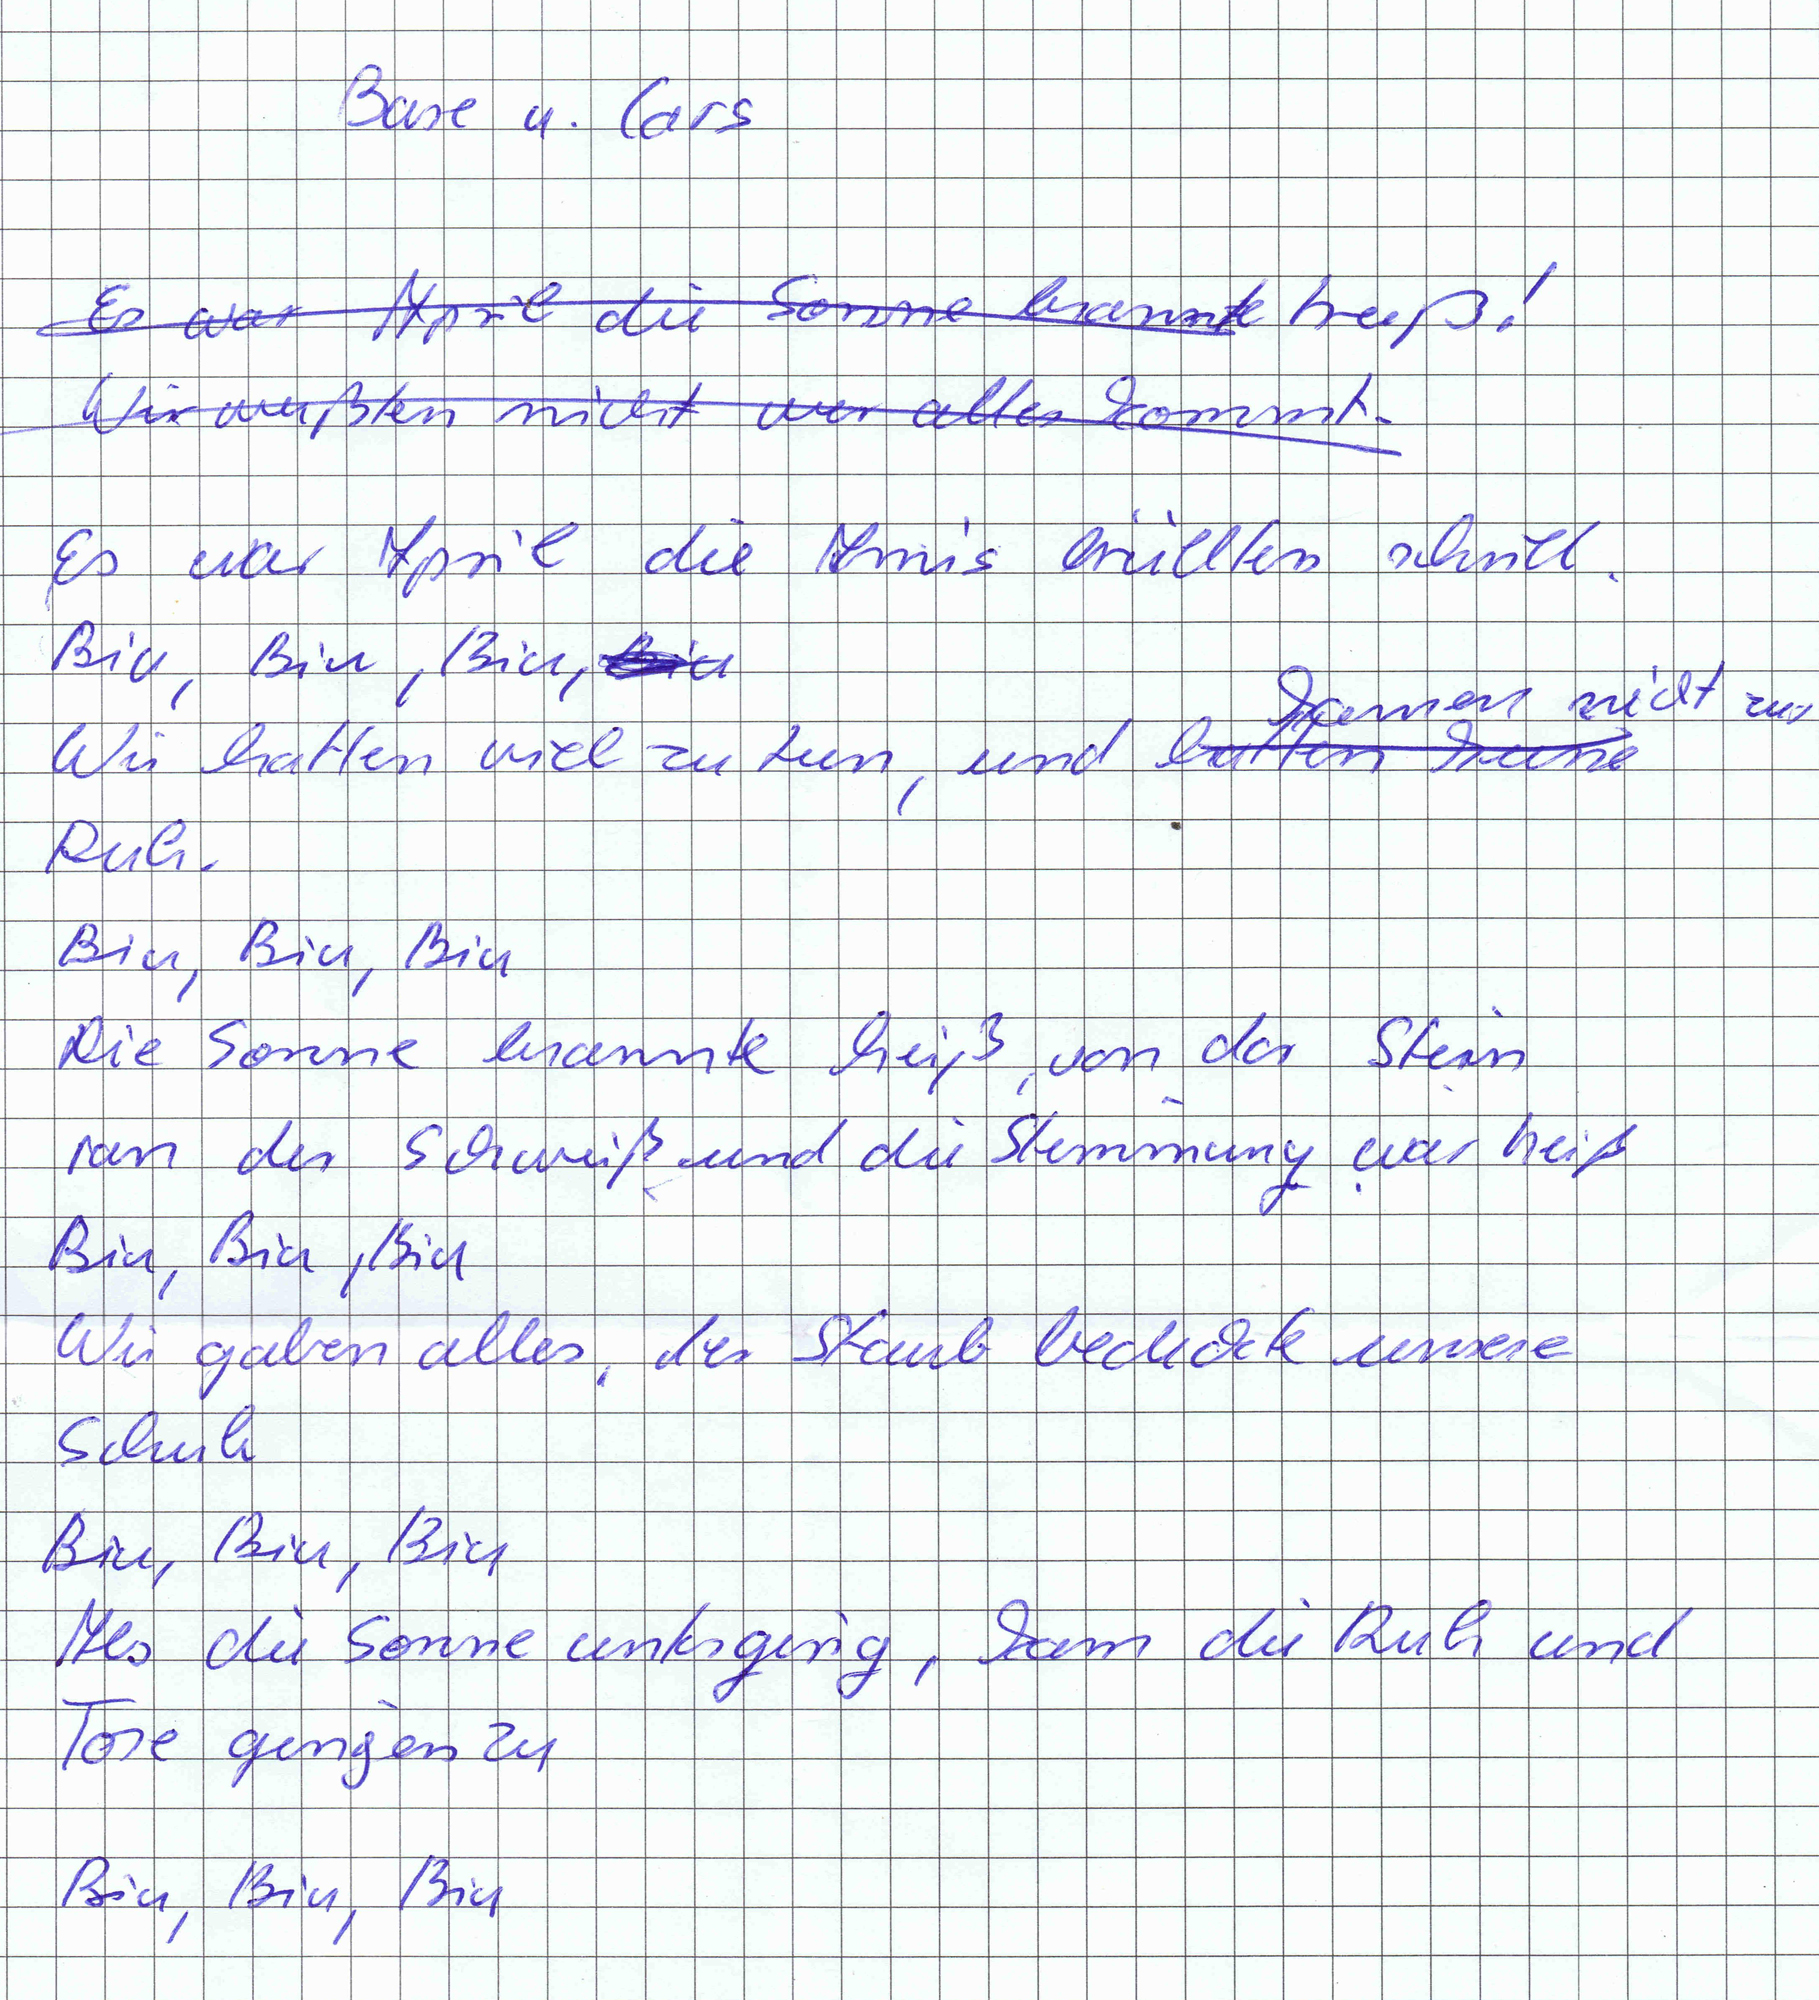 Base u. Cars
Es war April die Sonne brannte heiß!
Wir wußten nicht wer alles kommt.
Es war April die Amis brüllten schrill.
Biu, Biu, Biu, Biu
kamen nicht zur
Wir hatten viel zu tun, und hatten keine
Ruh.
Biu, Biu, Biu
Die Sonne brannte heiß, von der Stirn
ran der Schweiß und die Stimmung war heiß
Biu, Biu, Biu
Wir gaben alles, der Staub bedeckte unsere
Schuh
Biu, Biu, Biu
Als die Sonne unterging, kam die Ruh und
Tore gingen zu
Biu, Biu, Biu